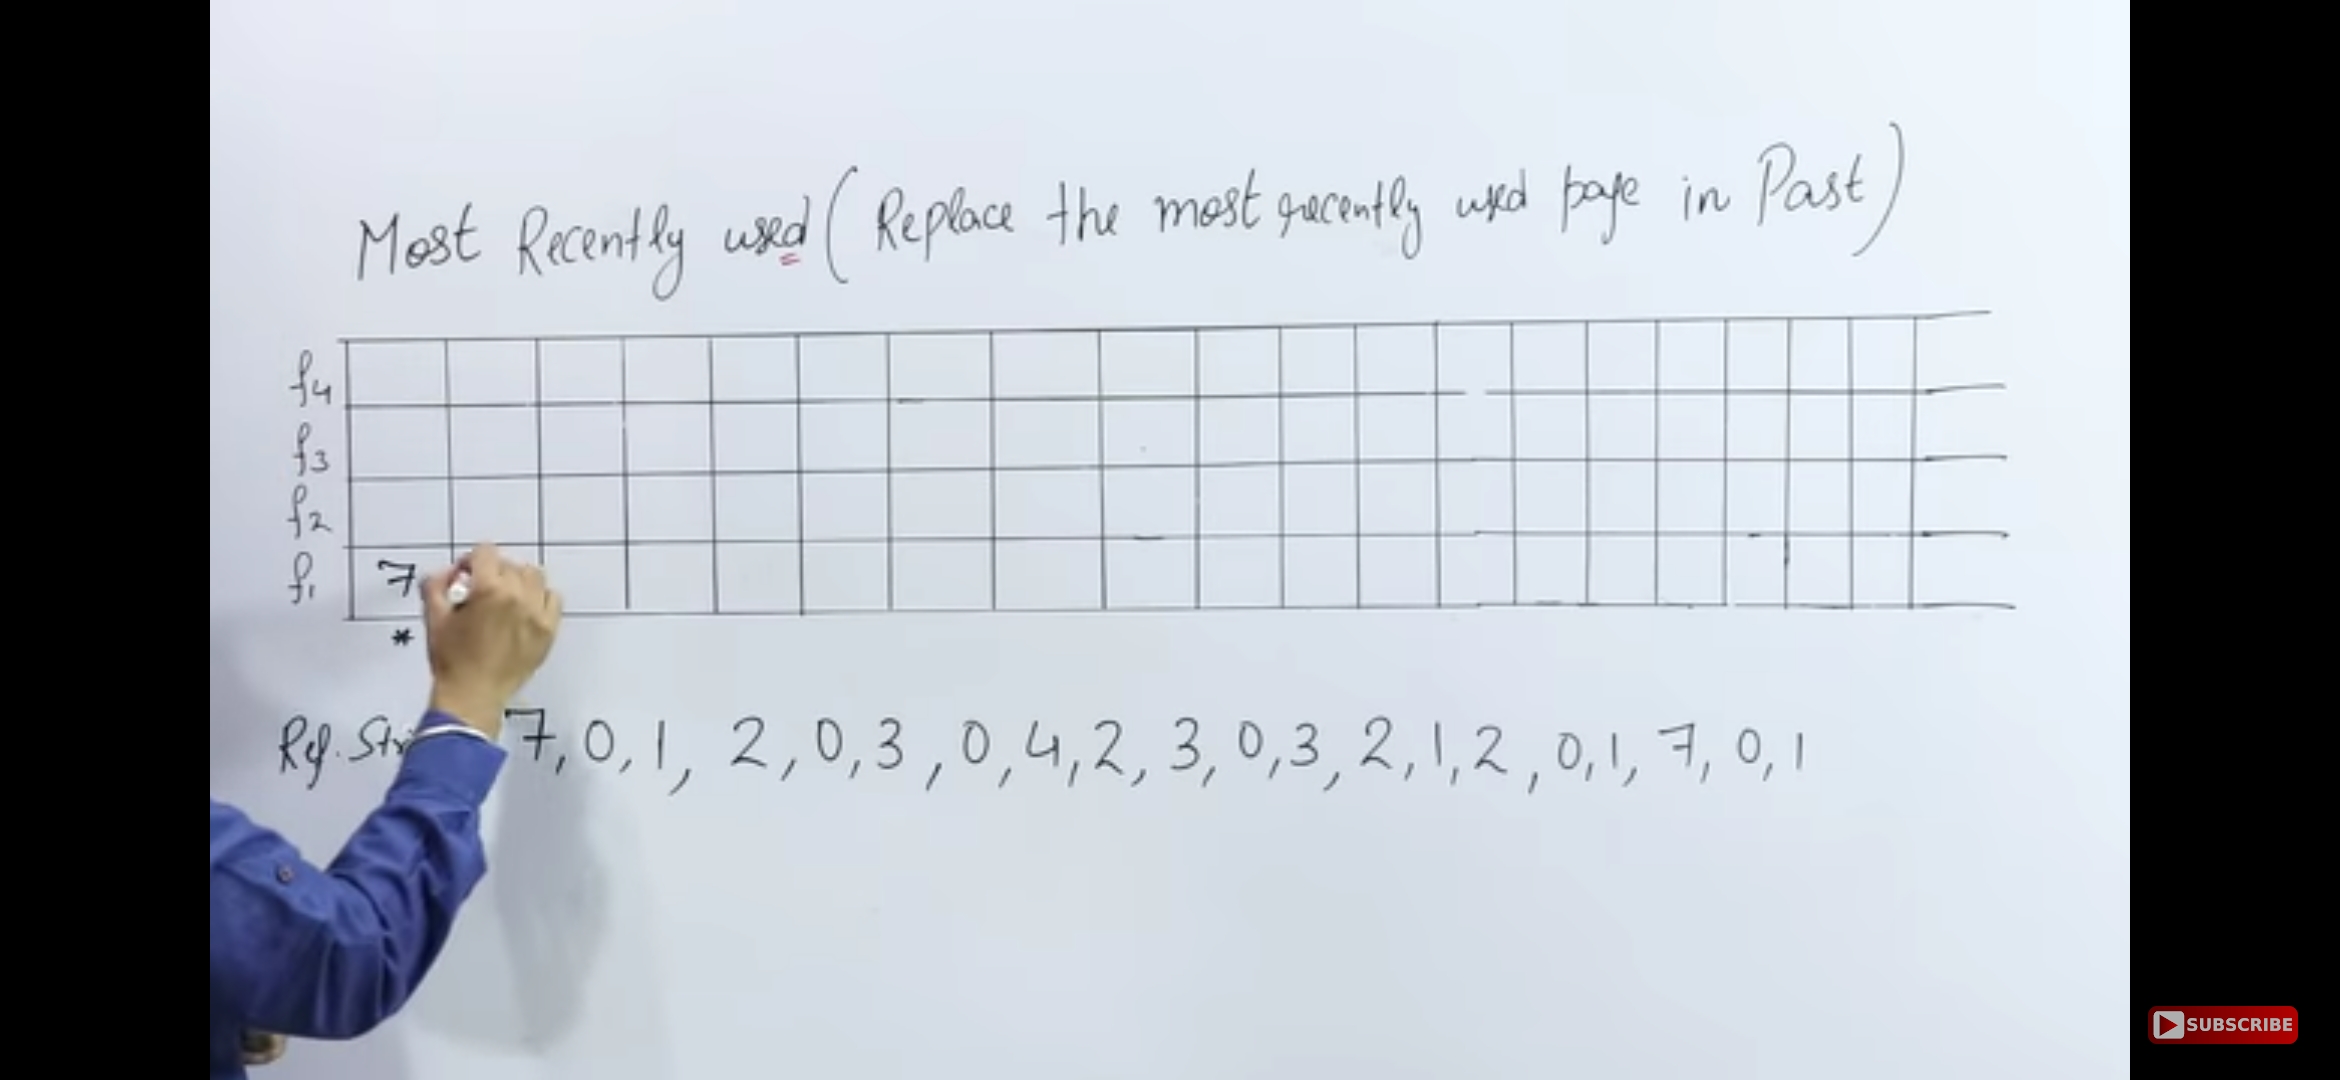 Most Recently used (Replace the most recently used page in Past)
f4
f3
f2
f1 7
*
Ref. 7, 0, 1, 2, 0, 3, 0, 4, 2, 3, 0, 3, 2, 1, 2, 0, 1, 7, 0, 1
SUBSCRIBE